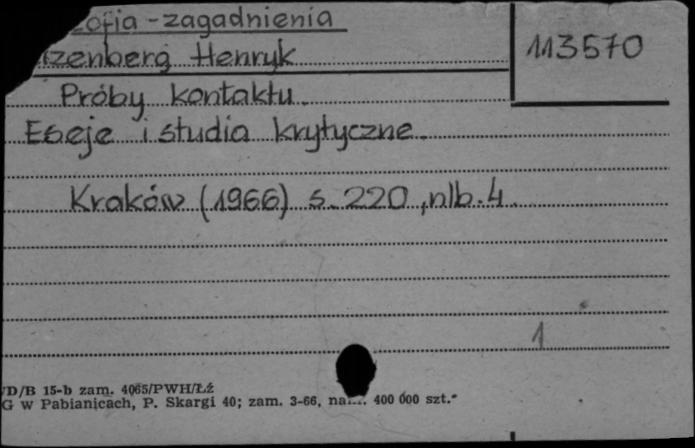 zofia - zagadnienia
113570
zenberg Henryk
Próby kontaktu.
Eseje i studia krytyczne.
Kraków (1966) s. 220, nlb. 4.
1
D/B 15-b zam. 4065/PWH/Łź
G w Pabianicach, P. Skargi 40; zam. 3-66, 400 000 szt.